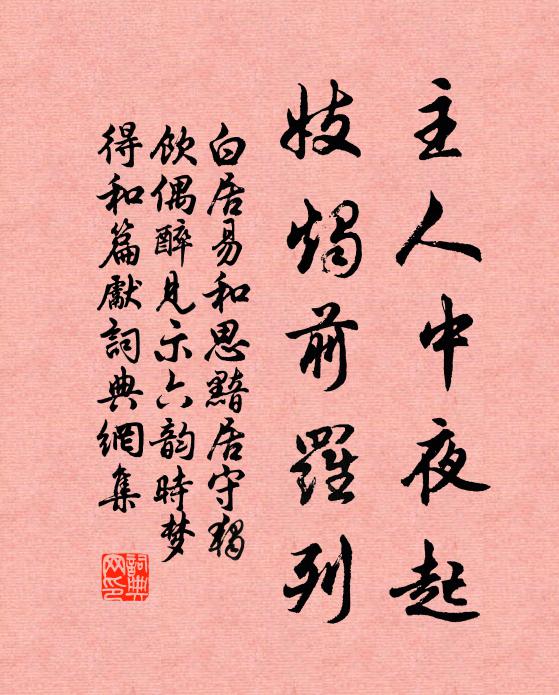 主人中夜起
妓燭前羅列
白居易和思黯居守獨
飲偶醉見示六韵時梦
得和篇獻詞典網集
詞典
网印